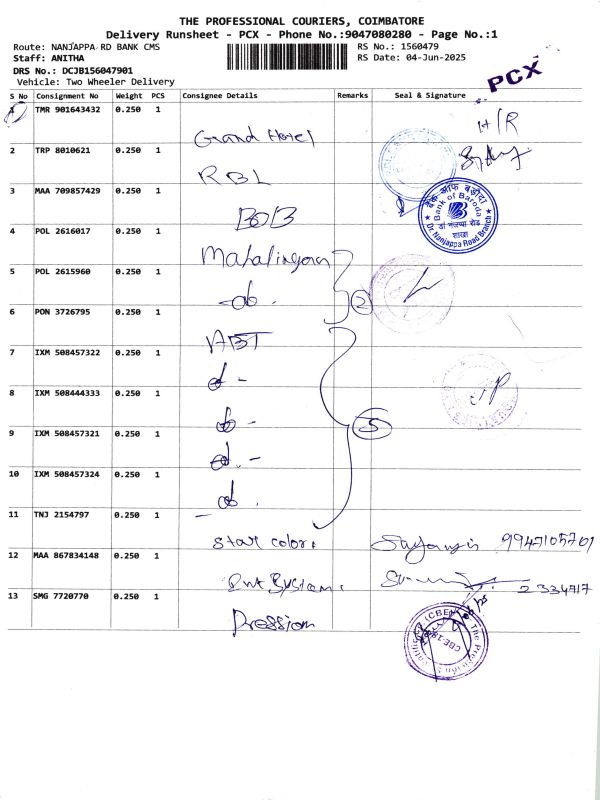 THE PROFESSIONAL COURIERS, COIMBATORE
Delivery Runsheet - PCX - Phone No.:9047080280 - Page No.:1
Route: NANJAPPA RD BANK CMS RS No.: 1560479
Staff: ANITHA RS Date: 04-Jun-2025
DRS No.: DCJB156047901
Vehicle: Two Wheeler Delivery
PCX
S No Consignment No Weight PCS Consignee Details Remarks Seal & Signature
1 TMR 901643432 0.250 1
Grand Hotel
2 TRP 8010621 0.250 1
RBL
3 MAA 709857429 0.250 1
BOB
बैंक ऑफ बड़ौदा
Bank of Baroda
डॉ नंजप्पा रोड
शाखा
Dr. Nanjappa Road Branch
4 POL 2616017 0.250 1
Mahalingam
5 POL 2615960 0.250 1
-do. 2
6 PON 3726795 0.250 1
ABT
7 IXM 508457322 0.250 1
d -
8 IXM 508444333 0.250 1
do -
5
9 IXM 508457321 0.250 1
d. -
10 IXM 508457324 0.250 1
do.
11 TNJ 2154797 0.250 1
Star color. 9947105701
12 MAA 867834148 0.250 1
2334717
13 SMG 7720770 0.250 1
Pression